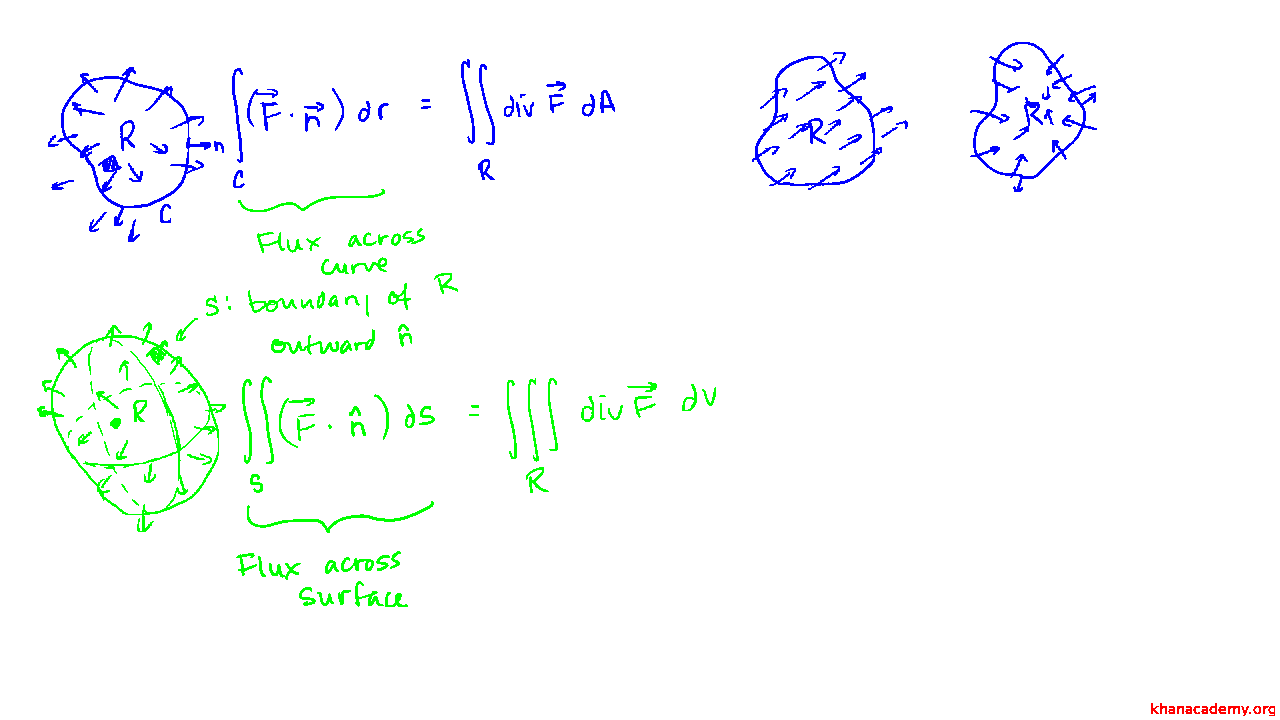 R
n
C
∫_C (F⃗ · n⃗) dr = ∬_R div F⃗ dA
R
R
Flux across
curve
S: boundary of R
outward n̂
R
∬_S (F⃗ · n̂) dS = ∭_R div F⃗ dV
Flux across
surface
khanacademy.org